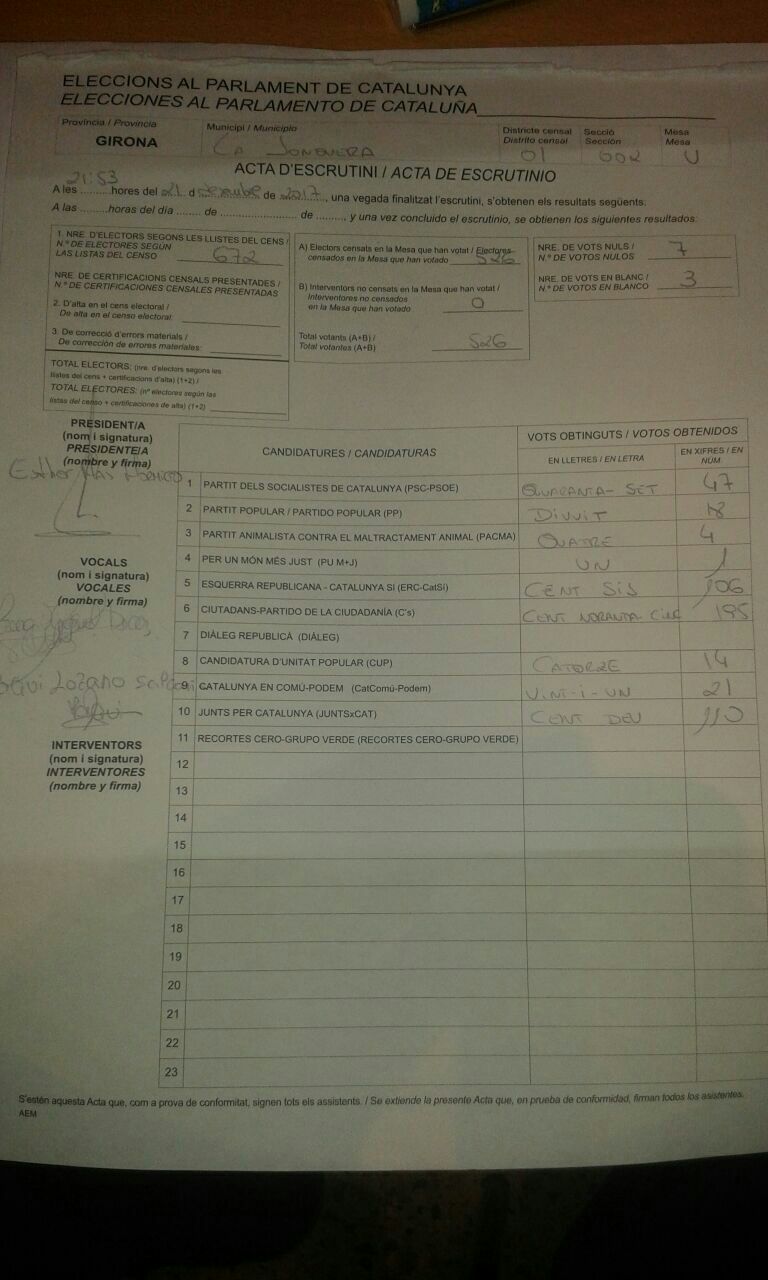 ELECCIONS AL PARLAMENT DE CATALUNYA
ELECCIONES AL PARLAMENTO DE CATALUÑA
Província / Provincia
GIRONA
Municipi / Municipio
LA JONQUERA
Districte censal
Distrito censal
01
Secció
Sección
002
Mesa
Mesa
U
ACTA D'ESCRUTINI / ACTA DE ESCRUTINIO
A les 21:53 hores del 21 d desembre de 2017, una vegada finalitzat l'escrutini, s'obtenen els resultats següents:
A las ......... horas del día ....... de ...................... de ........, y una vez concluido el escrutinio, se obtienen los siguientes resultados:
1. NRE. D'ELECTORS SEGONS LES LLISTES DEL CENS /
N.º DE ELECTORES SEGÚN
LAS LISTAS DEL CENSO 672
NRE. DE CERTIFICACIONS CENSALS PRESENTADES /
N.º DE CERTIFICACIONES CENSALES PRESENTADAS
2. D'alta en el cens electoral /
De alta en el censo electoral:
3. De correcció d'errors materials /
De corrección de errores materiales:
TOTAL ELECTORS: (nre. d'electors segons les
llistes del cens + certificacions d'alta) (1+2) /
TOTAL ELECTORES: (nº electores según las
listas del censo + certificaciones de alta) (1+2)
A) Electors censats en la Mesa que han votat / Electores
censados en la Mesa que han votado 526
B) Interventors no censats en la Mesa que han votat /
Interventores no censados
en la Mesa que han votado 0
Total votants (A+B) /
Total votantes (A+B) 526
NRE. DE VOTS NULS /
N.º DE VOTOS NULOS 7
NRE. DE VOTS EN BLANC /
N.º DE VOTOS EN BLANCO 3
PRESIDENT/A
(nom i signatura)
PRESIDENTE/A
(nombre y firma)
Esther Mas
VOCALS
(nom i signatura)
VOCALES
(nombre y firma)
Lozano
INTERVENTORS
(nom i signatura)
INTERVENTORES
(nombre y firma)
CANDIDATURES / CANDIDATURAS
VOTS OBTINGUTS / VOTOS OBTENIDOS
EN LLETRES / EN LETRA
EN XIFRES / EN NÚM.
1 PARTIT DELS SOCIALISTES DE CATALUNYA (PSC-PSOE) QUARANTA-SET 47
2 PARTIT POPULAR / PARTIDO POPULAR (PP) DIVUIT 18
3 PARTIT ANIMALISTA CONTRA EL MALTRACTAMENT ANIMAL (PACMA) QUATRE 4
4 PER UN MÓN MÉS JUST (PU M+J) UN 1
5 ESQUERRA REPUBLICANA - CATALUNYA SÍ (ERC-CatSí) CENT SIS 106
6 CIUTADANS-PARTIDO DE LA CIUDADANÍA (C's) CENT NORANTA CINC 195
7 DIÀLEG REPUBLICÀ (DIÀLEG)
8 CANDIDATURA D'UNITAT POPULAR (CUP) CATORZE 14
9 CATALUNYA EN COMÚ-PODEM (CatComú-Podem) VINT-I-UN 21
10 JUNTS PER CATALUNYA (JUNTSxCAT) CENT DEU 110
11 RECORTES CERO-GRUPO VERDE (RECORTES CERO-GRUPO VERDE)
12
13
14
15
16
17
18
19
20
21
22
23
S'estén aquesta Acta que, com a prova de conformitat, signen tots els assistents. / Se extiende la presente Acta que, en prueba de conformidad, firman todos los asistentes.
AEM